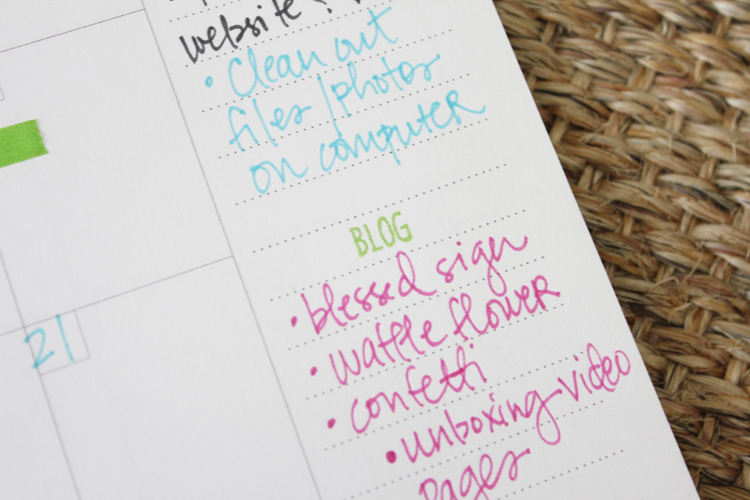 website
• Clean out
files/photos
on computer
BLOG
• blessed sign
• waffle flower
• confetti
• unboxing video
pages
21